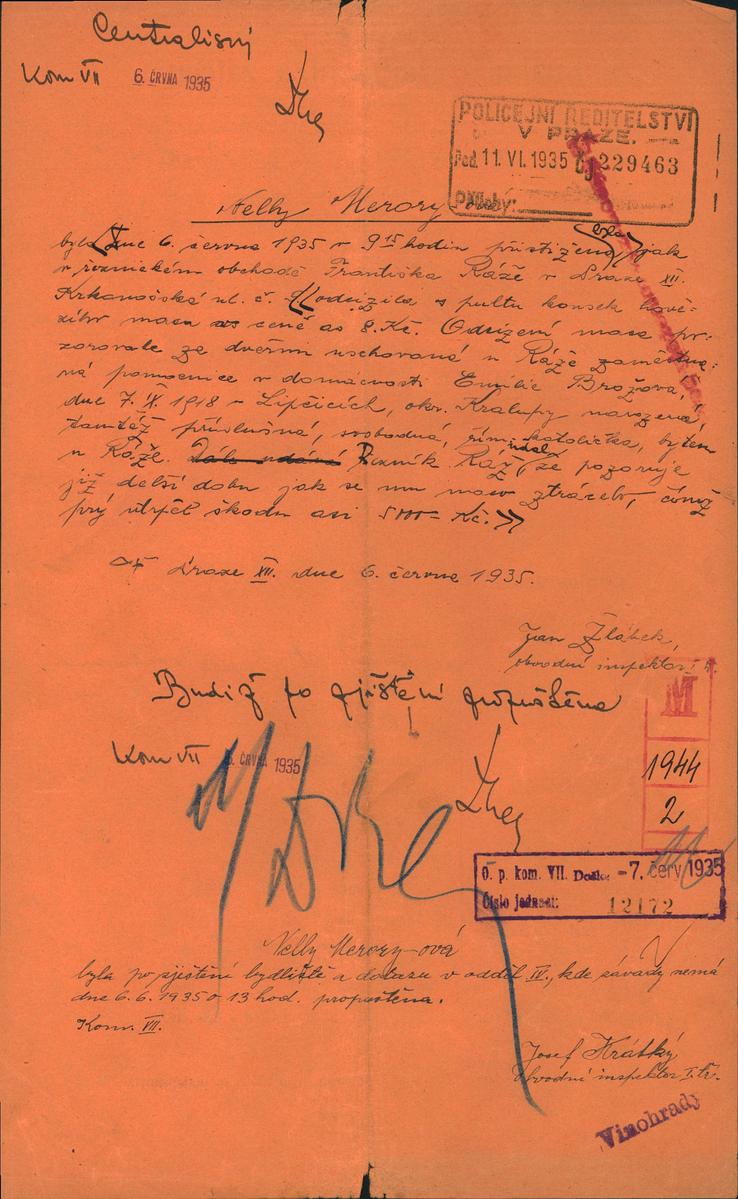 Centralisuj
Kom VII 6. ČRVNA 1935
POLICEJNÍ ŘEDITELSTVÍ
V PRAZE.
Pod. 11. VI. 1935 Čj 229463
Přílohy:
Nelly Merory-ová
byla dne 6. června 1935 v 9 15 hodin přistižena, jak
v řeznickém obchodě Františka Ráže v Praze XII.
Krkonošská ul. č. odcizila s pultu kousek hově-
zího masa v ceně as 8 Kč. Odcizení masa po-
zorovala za dveřmi uschovaná u Ráže zaměstna-
ná pomocnice v domácnosti Emilie Brožova,
dne 7. IX. 1918 v Lipčicích, okr. Kralupy narozená,
tamtéž příslušná, svobodná, řím. katolička, bytem
u Ráže. Dále udává Řezník Ráž udal, že pozoruje
již delší dobu jak se mu maso ztrácelo, čímž
prý utrpěl škodu asi 500- Kč.
V Praze XII. dne 6. června 1935.
Jan Žlábek,
obvodní inspektor
Budiž po zjištění propuštěna
Kom VII 6. ČRVNA 1935
M
1944
2
O. p. kom. VII. Došlo: -7. červ 1935
Číslo jednací: 12172
Nelly Merory-ová
byla po zjištění bydliště a dotazu v odděl IV., kde závady nemá
dne 6.6.1935 o 13 hod. propuštěna.
Kom. VII.
Josef Krátký
Obvodní inspektor I. tř.
Vinohrady